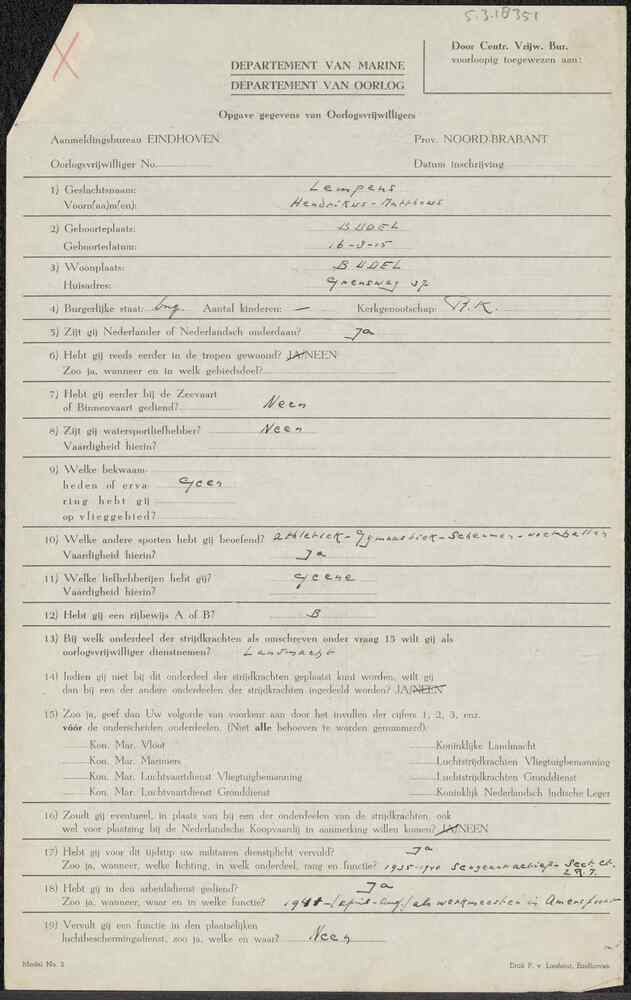 5.3.18351
Door Centr. Vrijw. Bur.
voorloopig toegewezen aan:
DEPARTEMENT VAN MARINE
DEPARTEMENT VAN OORLOG
Opgave gegevens van Oorlogsvrijwilligers
Aanmeldingsbureau EINDHOVEN Prov. NOORD-BRABANT
Oorlogsvrijwilliger No. Datum inschrijving
1) Geslachtsnaam: Lempens
Voorn(aa)m(en): Hendrikus - Mattheus
2) Geboorteplaats: BUDEL
Geboortedatum: 16-3-15
3) Woonplaats: BUDEL
Huisadres: Grensweg 37
4) Burgerlijke staat: ong. Aantal kinderen: — Kerkgenootschap: R.K.
5) Zijt gij Nederlander of Nederlandsch onderdaan? Ja
6) Hebt gij reeds eerder in de tropen gewoond? JA/NEEN
Zoo ja, wanneer en in welk gebiedsdeel?
7) Hebt gij eerder bij de Zeevaart
of Binnenvaart gediend? Neen
8) Zijt gij watersportliefhebber? Neen
Vaardigheid hierin?
9) Welke bekwaam-
heden of erva- Geen
ring hebt gij
op vlieggebied?
10) Welke andere sporten hebt gij beoefend? athletiek - Gymnastiek - Schermen - voetballen
Vaardigheid hierin? Ja
11) Welke liefhebberijen hebt gij? Geene
Vaardigheid hierin?
12) Hebt gij een rijbewijs A of B? B
13) Bij welk onderdeel der strijdkrachten als omschreven onder vraag 15 wilt gij als
oorlogsvrijwilliger dienstnemen? Landmacht
14) Indien gij niet bij dit onderdeel der strijdkrachten geplaatst kunt worden, wilt gij
dan bij een der andere onderdeelen der strijdkrachten ingedeeld worden? JA/NEEN
15) Zoo ja, geef dan Uw volgorde van voorkeur aan door het invullen der cijfers 1, 2, 3, enz.
vóór de onderscheiden onderdeelen. (Niet alle behoeven te worden genummerd):
Kon. Mar. Vloot Koninklijke Landmacht
Kon. Mar. Mariniers Luchtstrijdkrachten Vliegtuigbemanning
Kon. Mar. Luchtvaartdienst Vliegtuigbemanning Luchtstrijdkrachten Gronddienst
Kon. Mar. Luchtvaartdienst Gronddienst Koninklijk Nederlandsch Indische Leger
16) Zoudt gij eventueel, in plaats van bij een der onderdeelen van de strijdkrachten, ook
wel voor plaatsing bij de Nederlandsche Koopvaardij in aanmerking willen komen? JA/NEEN
17) Hebt gij vóór dit tijdstip uw militairen dienstplicht vervuld? Ja
Zoo ja, wanneer, welke lichting, in welk onderdeel, rang en functie? 1935-1940 Sergeant Sect. Ct.
18) Hebt gij in den arbeidsdienst gediend? Ja
Zoo ja, wanneer, waar en in welke functie? (april-aug.) als werkmeester in Amersfoort
19) Vervult gij een functie in den plaatselijken
luchtbeschermingsdienst, zoo ja, welke en waar? Neen
Model No. 3 Druk F. v. Lieshout, Eindhoven